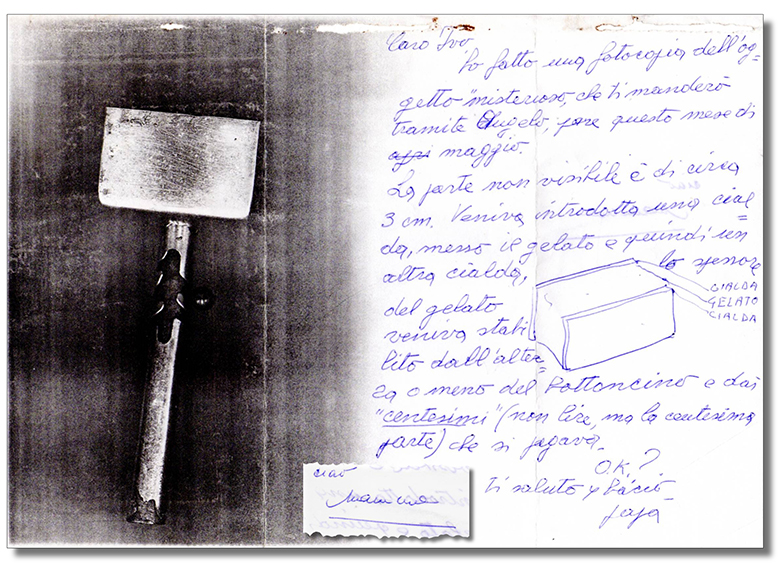 Caro Ivo
ho fatto una fotocopia dell'og=
getto "misterioso, che ti manderò
tramite Angelo, pare questo mese di
apri maggio.
La parte non visibile è di circa
3 cm. Veniva introdotta una cial=
da, messo il gelato e quindi un
altra cialda, lo spessore
CIALDA
GELATO
CIALDA
del gelato
veniva stabi
lito dall'altez=
za o meno del bottoncino e dai
"centesimi" (non lire, ma la centesima
parte) che si pagava.
O.K.?
ti saluto y bacio
ciao